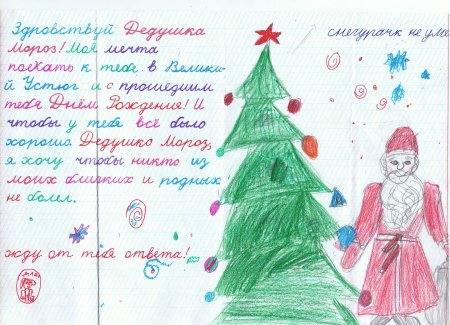 Здравствуй Дедушка
Мороз! Моя мечта
поехать к тебе в Велики-
й Устюг и с прошедшим
тебя Днём Рождения! И
чтобы у тебя всё было
хорошо Дедушко Мороз,
я хочу чтобы никто из
моих близких и родных
не болел.
жду от тебя ответа!
снегурачк не уме